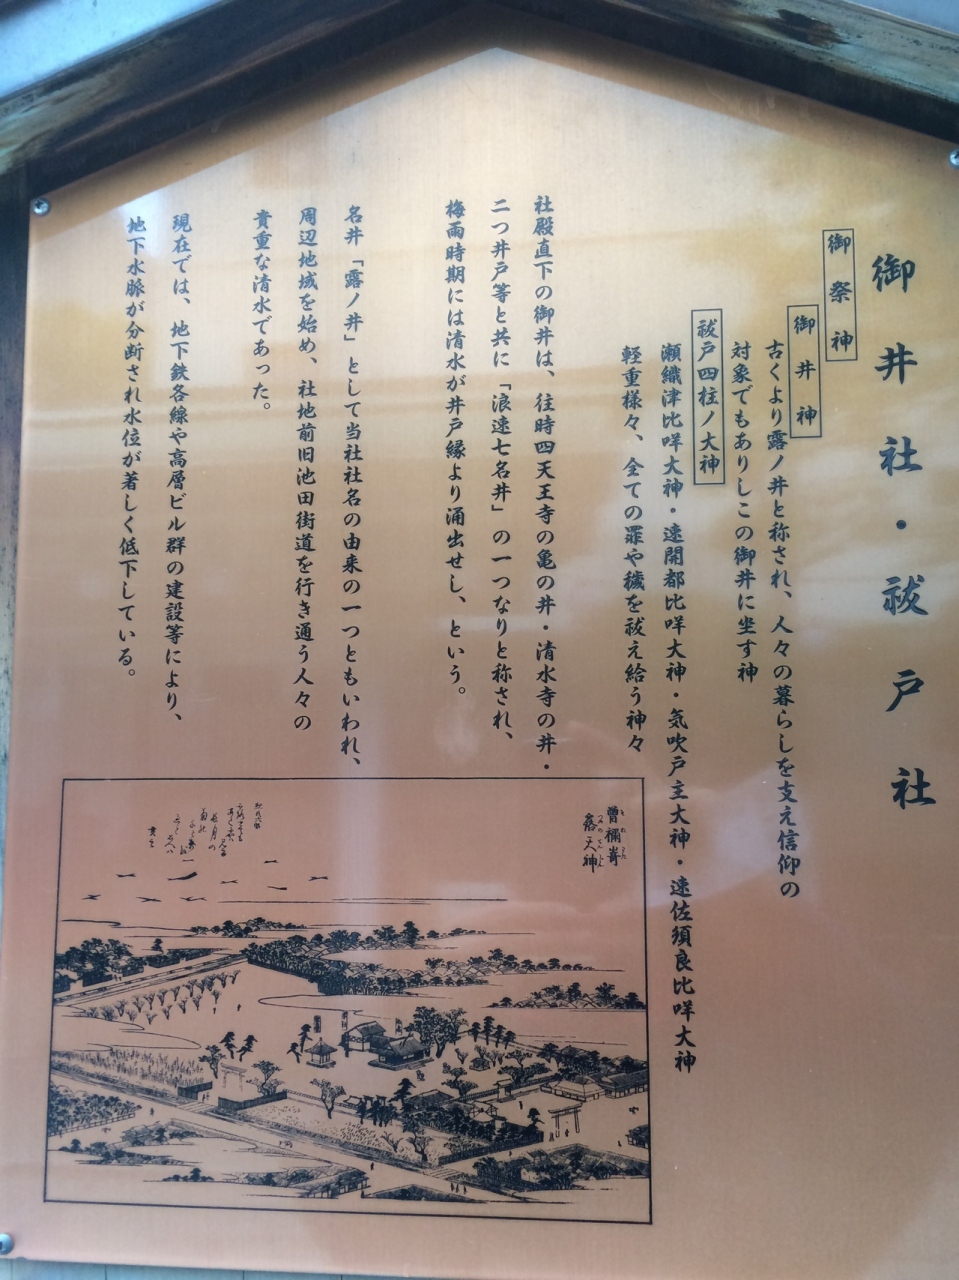 御井社・祓戸社
御祭神
御井神
古くより露ノ井と称され、人々の暮らしを支え信仰の
対象でもありしこの御井に坐す神
祓戸四柱ノ大神
瀬織津比咩大神・速開都比咩大神・気吹戸主大神・速佐須良比咩大神
軽重様々、全ての罪や穢を祓え給う神々
社殿直下の御井は、往時四天王寺の亀の井・清水寺の井・
二つ井戸等と共に「浪速七名井」の一つなりと称され、
梅雨時期には清水が井戸縁より涌出せし、という。
名井「露ノ井」として当社社名の由来の一つともいわれ、
周辺地域を始め、社地前旧池田街道を行き通う人々の
貴重な清水であった。
現在では、地下鉄各線や高層ビル群の建設等により、
地下水脈が分断され水位が著しく低下している。